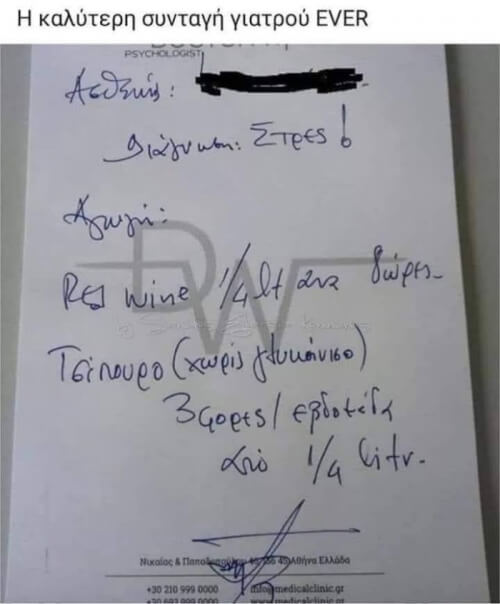 Η καλύτερη συνταγή γιατρού EVER
PSYCHOLOGIST
Ασθενής:
Διάγνωση: Στρες!
Αγωγή:
DW
Red wine 1/4 lt ανα δώρες
Τσίπουρο (χωρίς γλυκάνισο)
3 φορες / εβδομάδα
από 1/4 litr.
Νικαίας & Αθήνα Ελλάδα
+30 210 999 0000 info@medicalclinic.gr
www.medicalclinic.gr